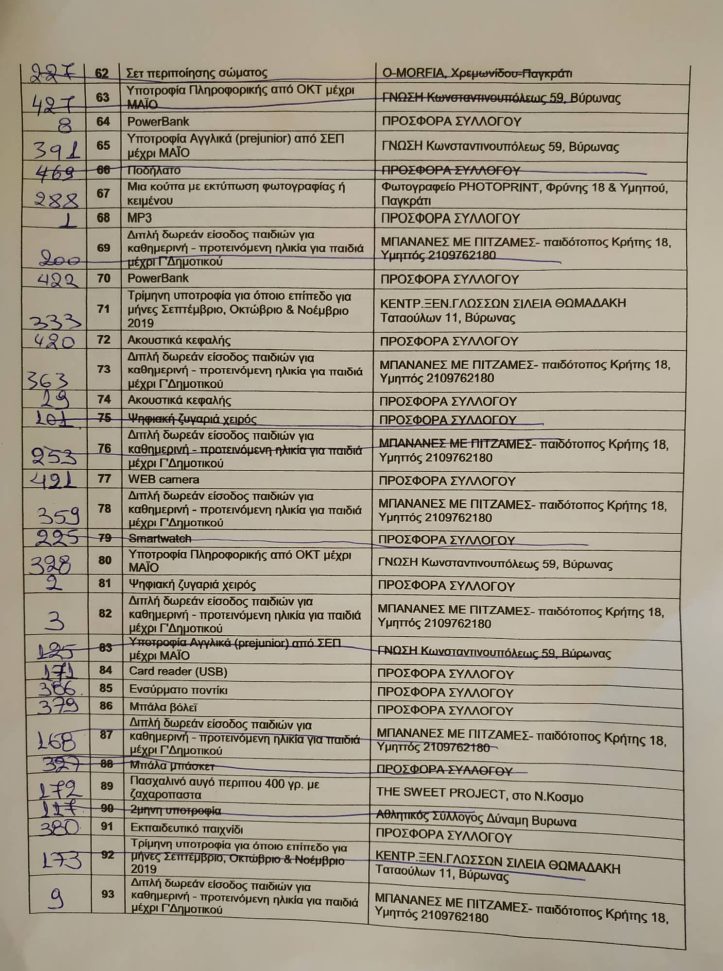 227 62 Σετ περιποίησης σώματος Ο-MORFIA, Χρεμωνίδου-Παγκράτι
427 63 Υποτροφία Πληροφορικής από ΟΚΤ μέχρι ΜΑΪΟ ΓΝΩΣΗ Κωνσταντινουπόλεως 59, Βύρωνας
8 64 PowerBank ΠΡΟΣΦΟΡΑ ΣΥΛΛΟΓΟΥ
391 65 Υποτροφία Αγγλικά (prejunior) από ΣΕΠ μέχρι ΜΑΪΟ ΓΝΩΣΗ Κωνσταντινουπόλεως 59, Βύρωνας
469 66 Ποδήλατο ΠΡΟΣΦΟΡΑ ΣΥΛΛΟΓΟΥ
288 67 Μια κούπα με εκτύπωση φωτογραφίας ή κειμένου Φωτογραφείο PHOTOPRINT, Φρύνης 18 & Υμηττού, Παγκράτι
1 68 MP3 ΠΡΟΣΦΟΡΑ ΣΥΛΛΟΓΟΥ
200 69 Διπλή δωρεάν είσοδος παιδιών για καθημερινή - προτεινόμενη ηλικία για παιδιά μέχρι Γ'Δημοτικού ΜΠΑΝΑΝΕΣ ΜΕ ΠΙΤΖΑΜΕΣ- παιδότοπος Κρήτης 18, Υμηττός 2109762180
422 70 PowerBank ΠΡΟΣΦΟΡΑ ΣΥΛΛΟΓΟΥ
333 71 Τρίμηνη υποτροφία για όποιο επίπεδο για μήνες Σεπτέμβριο, Οκτώβριο & Νοέμβριο 2019 ΚΕΝΤΡ.ΞΕΝ.ΓΛΩΣΣΩΝ ΣΙΛΕΙΑ ΘΩΜΑΔΑΚΗ Ταταούλων 11, Βύρωνας
420 72 Ακουστικά κεφαλής ΠΡΟΣΦΟΡΑ ΣΥΛΛΟΓΟΥ
363 73 Διπλή δωρεάν είσοδος παιδιών για καθημερινή - προτεινόμενη ηλικία για παιδιά μέχρι Γ'Δημοτικού ΜΠΑΝΑΝΕΣ ΜΕ ΠΙΤΖΑΜΕΣ- παιδότοπος Κρήτης 18, Υμηττός 2109762180
29 74 Ακουστικά κεφαλής ΠΡΟΣΦΟΡΑ ΣΥΛΛΟΓΟΥ
101 75 Ψηφιακή ζυγαριά χειρός ΠΡΟΣΦΟΡΑ ΣΥΛΛΟΓΟΥ
253 76 Διπλή δωρεάν είσοδος παιδιών για καθημερινή - προτεινόμενη ηλικία για παιδιά μέχρι Γ'Δημοτικού ΜΠΑΝΑΝΕΣ ΜΕ ΠΙΤΖΑΜΕΣ- παιδότοπος Κρήτης 18, Υμηττός 2109762180
421 77 WEB camera ΠΡΟΣΦΟΡΑ ΣΥΛΛΟΓΟΥ
359 78 Διπλή δωρεάν είσοδος παιδιών για καθημερινή - προτεινόμενη ηλικία για παιδιά μέχρι Γ'Δημοτικού ΜΠΑΝΑΝΕΣ ΜΕ ΠΙΤΖΑΜΕΣ- παιδότοπος Κρήτης 18, Υμηττός 2109762180
225 79 Smartwatch ΠΡΟΣΦΟΡΑ ΣΥΛΛΟΓΟΥ
328 80 Υποτροφία Πληροφορικής από ΟΚΤ μέχρι ΜΑΪΟ ΓΝΩΣΗ Κωνσταντινουπόλεως 59, Βύρωνας
2 81 Ψηφιακή ζυγαριά χειρός ΠΡΟΣΦΟΡΑ ΣΥΛΛΟΓΟΥ
3 82 Διπλή δωρεάν είσοδος παιδιών για καθημερινή - προτεινόμενη ηλικία για παιδιά μέχρι Γ'Δημοτικού ΜΠΑΝΑΝΕΣ ΜΕ ΠΙΤΖΑΜΕΣ- παιδότοπος Κρήτης 18, Υμηττός 2109762180
125 83 Υποτροφία Αγγλικά (prejunior) από ΣΕΠ μέχρι ΜΑΪΟ ΓΝΩΣΗ Κωνσταντινουπόλεως 59, Βύρωνας
171 84 Card reader (USB) ΠΡΟΣΦΟΡΑ ΣΥΛΛΟΓΟΥ
386 85 Ενσύρματο ποντίκι ΠΡΟΣΦΟΡΑ ΣΥΛΛΟΓΟΥ
379 86 Μπάλα βόλεϊ ΠΡΟΣΦΟΡΑ ΣΥΛΛΟΓΟΥ
168 87 Διπλή δωρεάν είσοδος παιδιών για καθημερινή - προτεινόμενη ηλικία για παιδιά μέχρι Γ'Δημοτικού ΜΠΑΝΑΝΕΣ ΜΕ ΠΙΤΖΑΜΕΣ- παιδότοπος Κρήτης 18, Υμηττός 2109762180
327 88 Μπάλα μπάσκετ ΠΡΟΣΦΟΡΑ ΣΥΛΛΟΓΟΥ
172 89 Πασχαλινό αυγό περιπου 400 γρ. με ζαχαροπαστα THE SWEET PROJECT, στο Ν.Κοσμο
117 90 2μηνη υποτροφία Αθλητικός Σύλλογος Δύναμη Βυρωνα
380 91 Εκπαιδευτικό παιχνίδι ΠΡΟΣΦΟΡΑ ΣΥΛΛΟΓΟΥ
173 92 Τρίμηνη υποτροφία για όποιο επίπεδο για μήνες Σεπτέμβριο, Οκτώβριο & Νοέμβριο 2019 ΚΕΝΤΡ.ΞΕΝ.ΓΛΩΣΣΩΝ ΣΙΛΕΙΑ ΘΩΜΑΔΑΚΗ Ταταούλων 11, Βύρωνας
9 93 Διπλή δωρεάν είσοδος παιδιών για καθημερινή - προτεινόμενη ηλικία για παιδιά μέχρι Γ'Δημοτικού ΜΠΑΝΑΝΕΣ ΜΕ ΠΙΤΖΑΜΕΣ- παιδότοπος Κρήτης 18, Υμηττός 2109762180